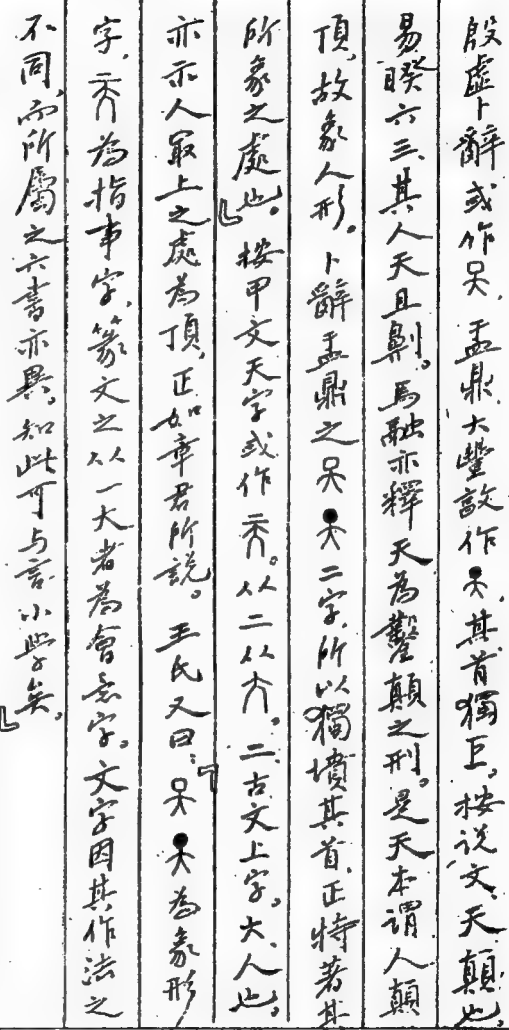 殷虛卜辭或作𠀡，盂鼎大豐𣪘作，其首獨巨。按说文，天，顛也。
易睽六三，其人天且劓。馬融亦釋天為鑿顛之刑。是天本谓人顛
頂，故象人形。卜辭盂鼎之二字，所以獨墳其首，正特著其
所象之處也。」按甲文天字或作，从二从。二，古文上字。大，人也。
亦示人最上之處為頂，正如章君所說。王氏又曰：「為象形
字，為指事字，篆文之从一大者為會意字。文字因其作法之
不同，而所屬之六書亦異。知此可与言小學矣。」